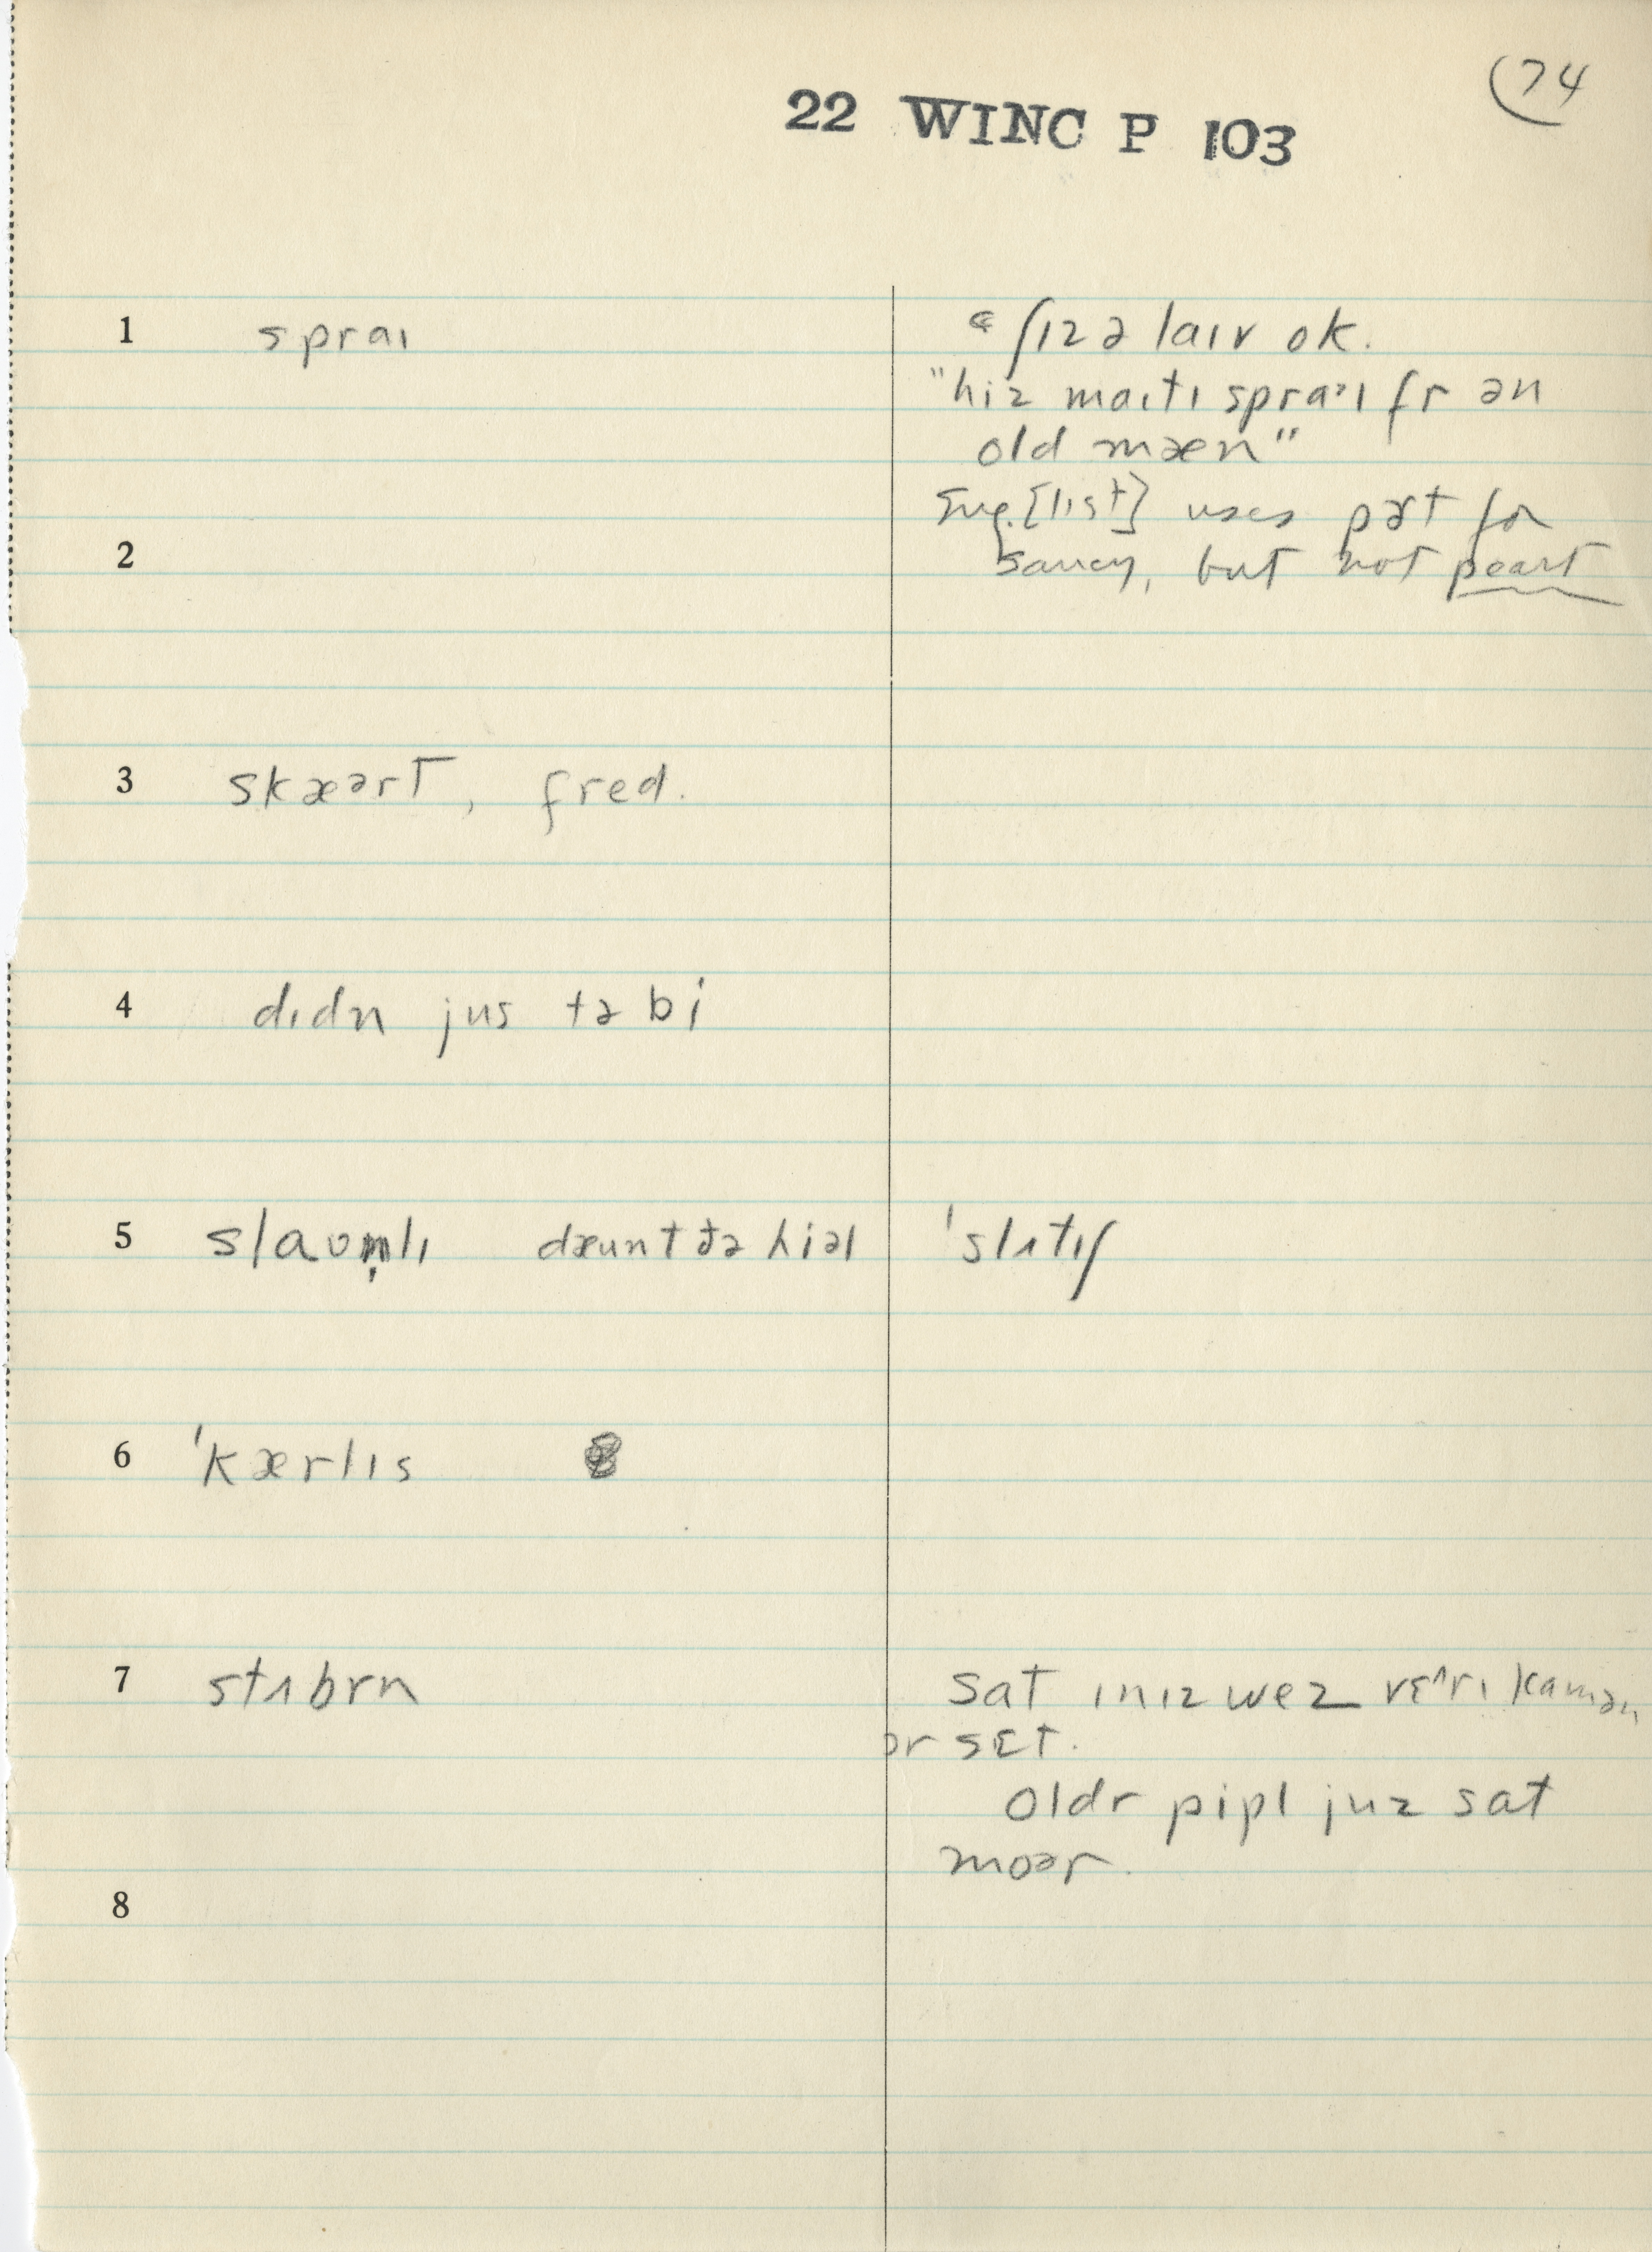 74
22 WINC P 103
1 spraɪ
ʃɪz ə laɪv ok.
"hiz maɪtɪ spraˑɪ fr ən
old mæn"
[lɪst] uses pərt for
2 saucy, but not peart
3 skæərt, fred.
4 dɪdn jus tə bi
5 slaʊn̩lɪ dæunt ðə hiəl ˈslʌtɪʃ
6 ˈkærlɪs
7 stʌbrn sat ɪnɪz wez vɛ^rɪ kamən
ɔr sɛt.
oldr pipl juz sat
moər.
8